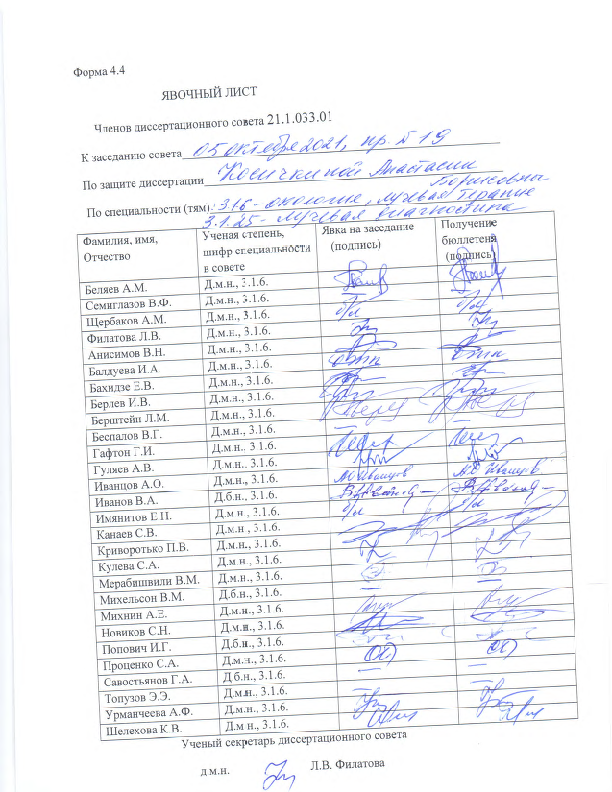 Форма 4.4
ЯВОЧНЫЙ ЛИСТ
Членов диссертационного совета 21.1.033.01
К заседанию совета 05 октября 2021, пр. № 19
По защите диссертации Косичкиной Анастасии
Борисовны
По специальности (тям): 3.1.6 - онкология, лучевая терапия
3.1.25 - лучевая диагностика
Фамилия, имя, Отчество Ученая степень, шифр специальности в совете Явка на заседание (подпись) Получение бюллетеня (подпись)
Беляев А.М. Д.м.н., 3.1.6.
Семиглазов В.Ф. Д.м.н., 3.1.6.
Щербаков А.М. Д.м.н., 3.1.6. б/л б/л
Филатова Л.В. Д.м.н., 3.1.6.
Анисимов В.Н. Д.м.н., 3.1.6.
Балдуева И.А. Д.м.н., 3.1.6.
Бахидзе Е.В. Д.м.н., 3.1.6.
Берлев И.В. Д.м.н., 3.1.6.
Берштейн Л.М. Д.м.н., 3.1.6.
Беспалов В.Г. Д.м.н., 3.1.6.
Гафтон Г.И. Д.м.н. 3.1.6.
Гуляев А.В. Д.м.н.. 3.1.6.
Иванцов А.О. Д.м.н., 3.1.6. АО Иванцов АО Иванцов
Иванов В.А. Д.б.н., 3.1.6.
Имянитов Е.Н. Д.м.н., 3.1.6. б/л б/л
Канаев С.В. Д.м.н., 3.1.6.
Криворотько П.В. Д.м.н., 3.1.6.
Кулева С.А. Д.м.н., 3.1.6.
Мерабишвили В.М. Д.м.н., 3.1.6.
Михельсон В.М. Д.б.н., 3.1.6.
Михнин А.Е. Д.м.н., 3.1.6.
Новиков С.Н. Д.м.н., 3.1.6.
Попович И.Г. Д.б.н., 3.1.6.
Проценко С.А. Д.м.н., 3.1.6.
Савостьянов Г.А. Д.б.н., 3.1.6.
Топузов Э.Э. Д.м.н., 3.1.6.
Урманчеева А.Ф. Д.м.н., 3.1.6.
Шелехова К.В. Д.м.н., 3.1.6.
Ученый секретарь диссертационного совета
д.м.н. Л.В. Филатова